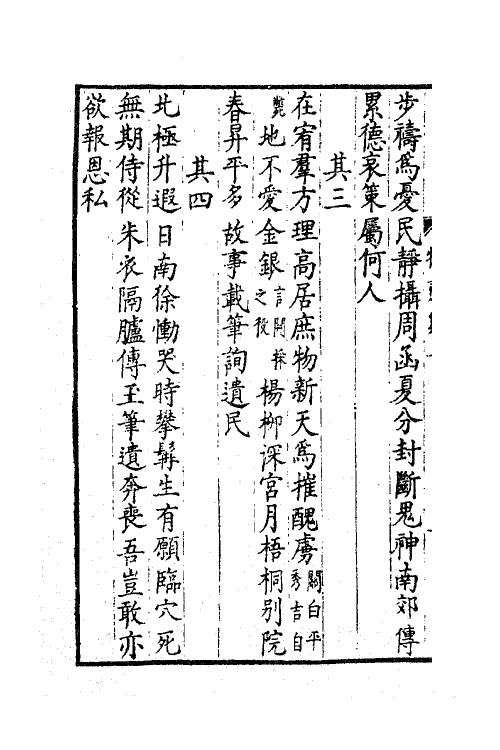 步禱爲憂民靜攝周函夏分封斷鬼神南郊傳
累德哀策屬何人
其三
在宥羣方理高居庶物新天爲摧醜虜關白平秀吉自
斃地不愛金銀言開採之役楊柳深宮月梧桐別院
春昇平多故事載筆詢遺民
其四
北極升遐日南徐慟哭時攀髯生有願臨穴死
無期侍從朱衣隔臚傳玉筆遺奔喪吾豈敢亦
欲報恩私